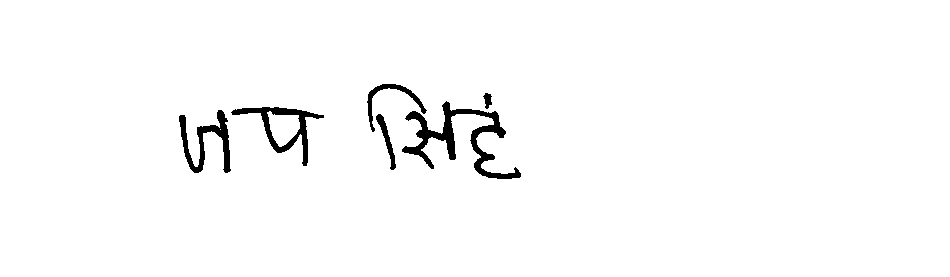 जप सिहं